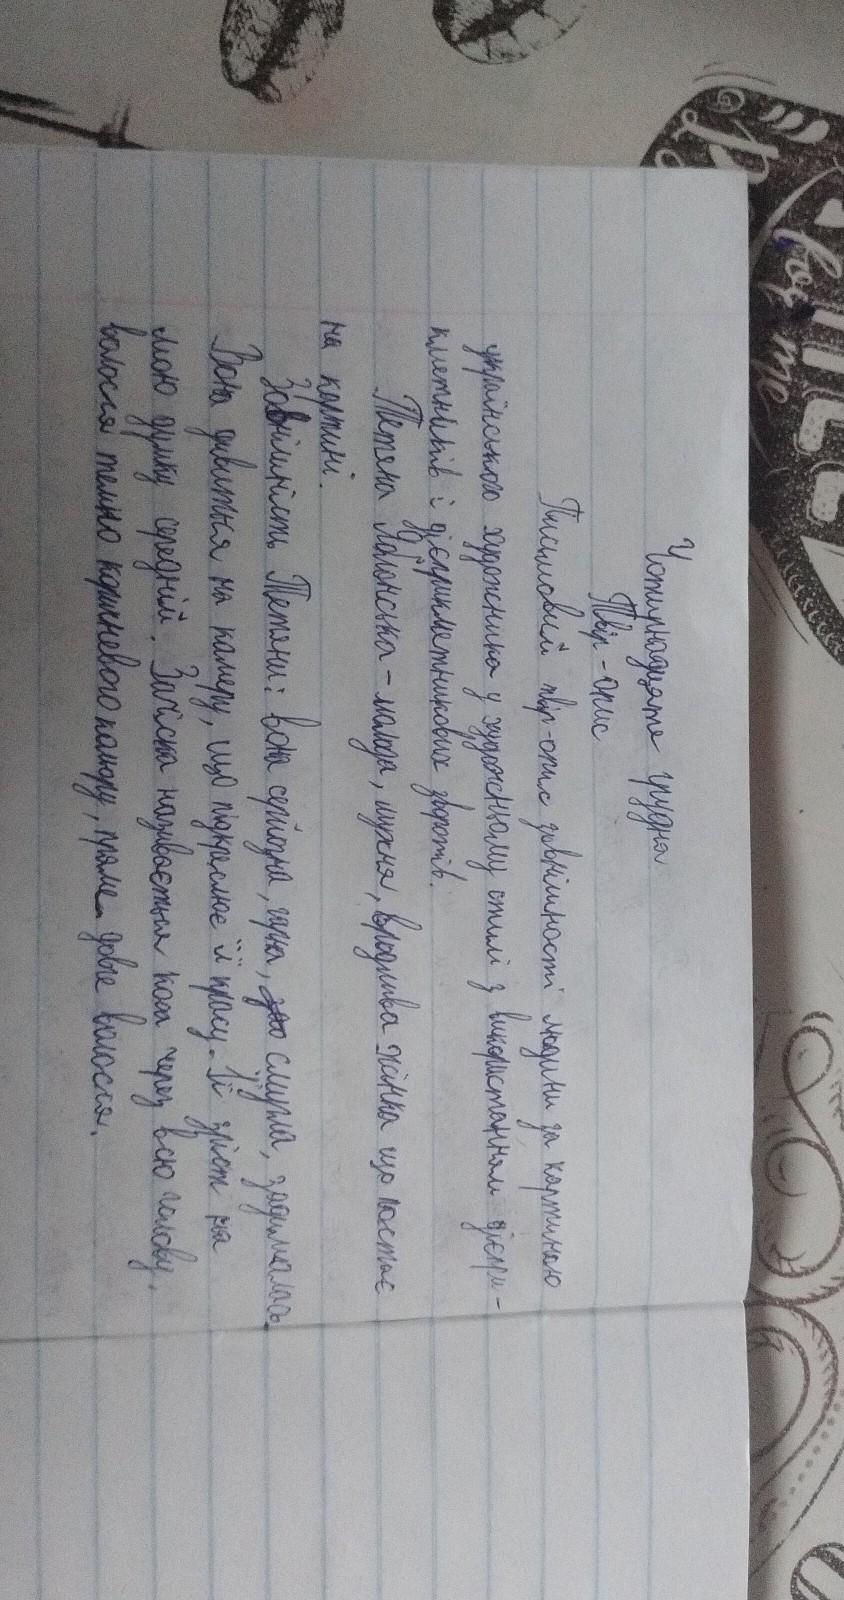 Чотирнадцяте грудня
Твір-опис
Письмовий твір-опис зовнішності людини за картиною
українського художника у художньому стилі з використанням дієпри-
кметників і дієприкметникових зворотів.
Тетяна - молода, мужня, вродлива жінка що постає
на картині.
Зовнішність Тетяни: вона серйозна, гарна, смугла, задумалась.
Вона дивиться на камеру, що підкреслює її красу. Її зріст на
мою думку середній. Зачіска називається коса через всю голову,
волосся темно коричневого кольору, пряме довге волосся.